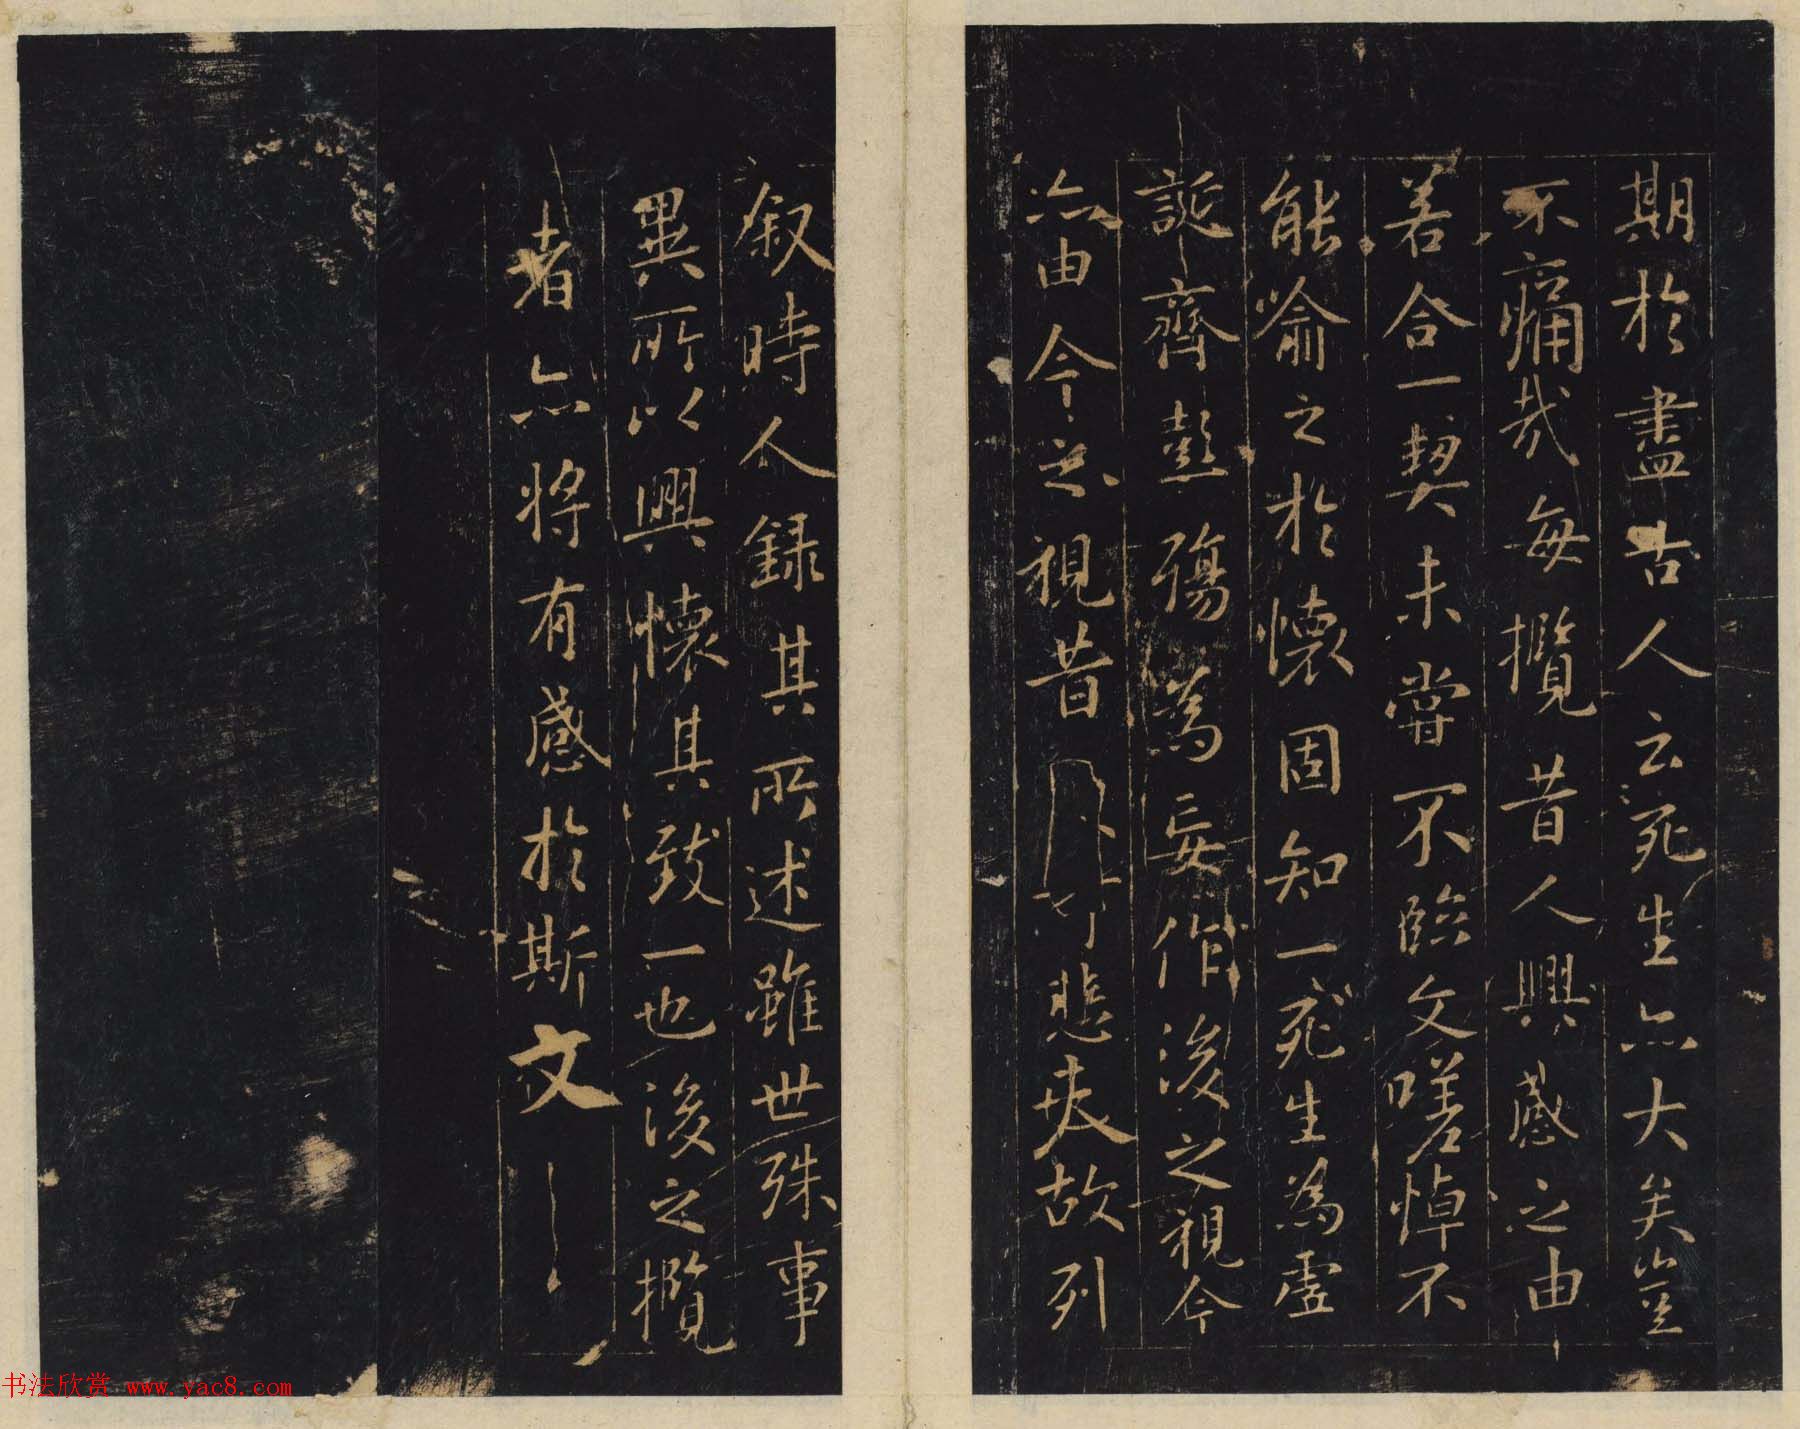 期於盡古人云死生亦大矣豈
不痛哉每攬昔人興感之由
若合一契未嘗不臨文嗟悼不
能喻之於懷固知一死生為虛
誕齊彭殤為妄作後之視今
亦由今之視昔悲夫故列
叙時人録其所述雖世殊事
異所以興懷其致一也後之攬
者亦將有感於斯文
书法欣赏 www.yac8.com